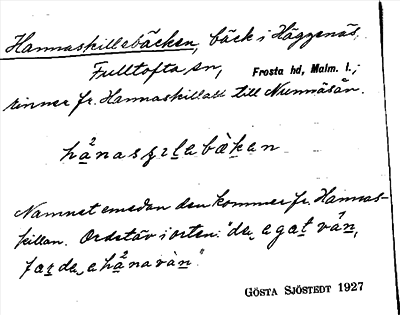 Hannaskillebäcken, bäck i Häggenäs,
Fulltofta sn, Frosta hd, Malm. l.;
rinner fr. Hannaskillan till Nunnäsån.
Namnet emedan den kommer fr. Hannas-
killan. Ordstäv i orten: "de e gat vån,
e hånavån".
GÖSTA SJÖSTEDT 1927